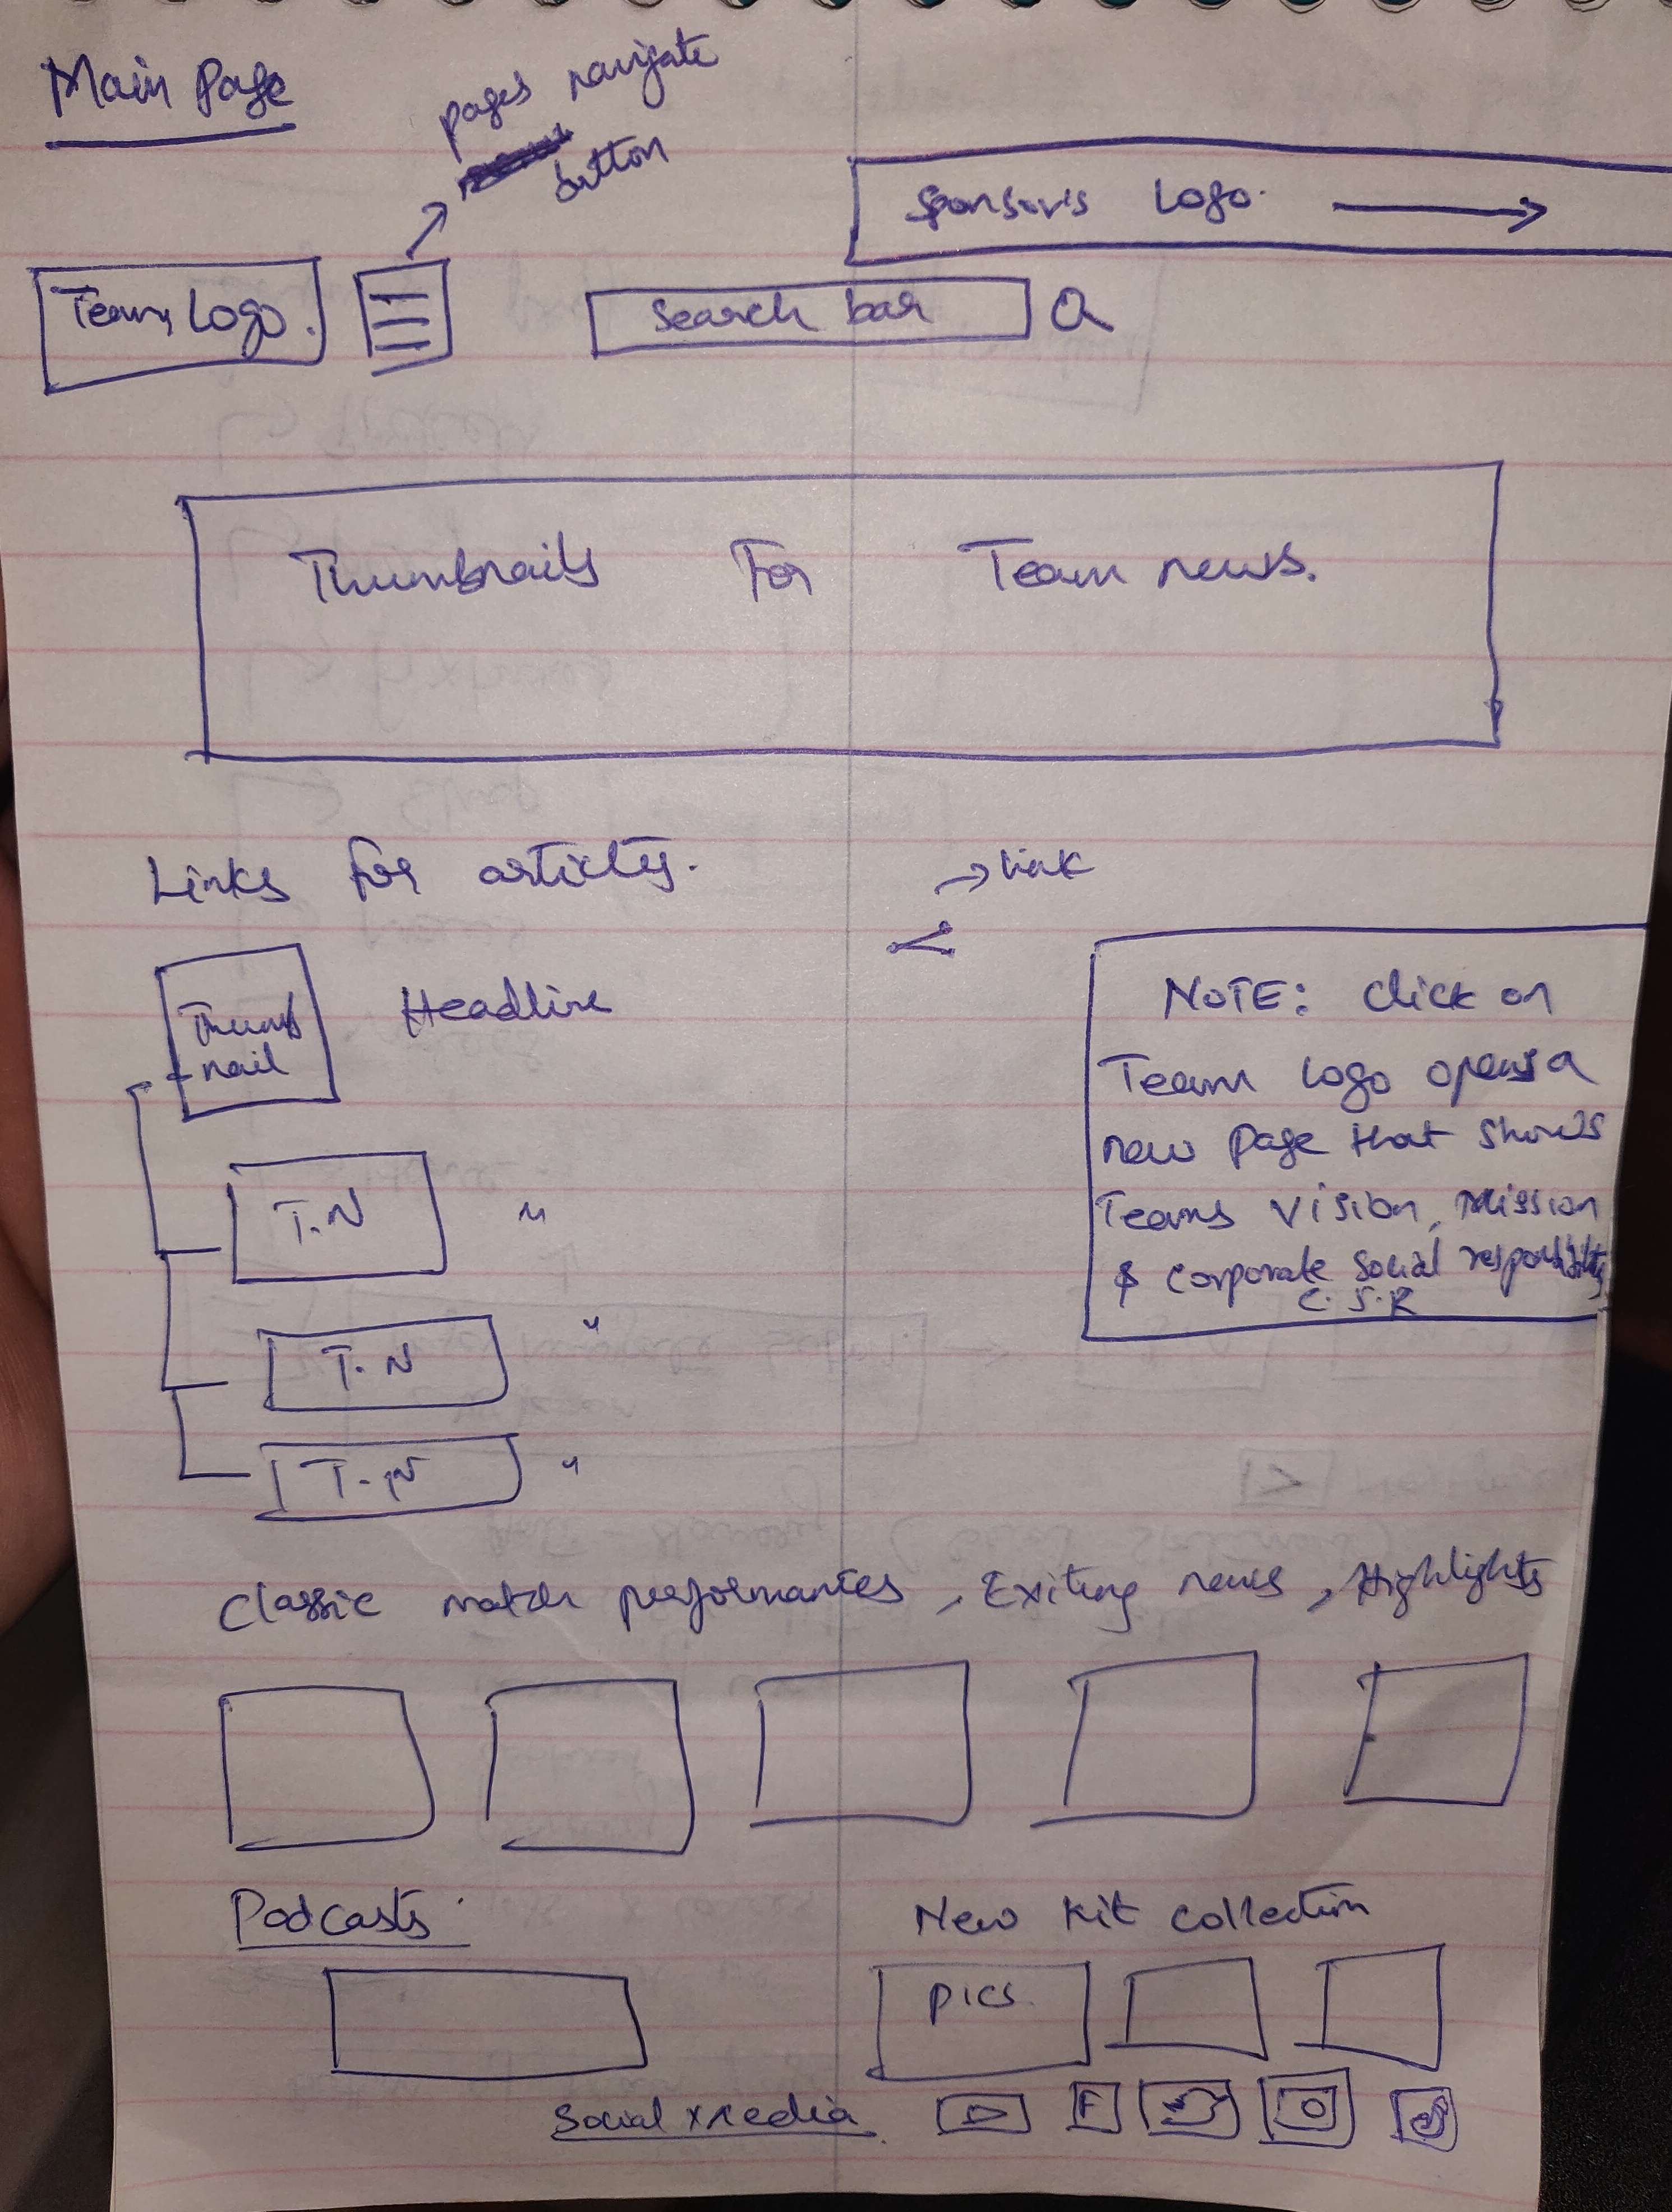 Main Page
pages navigate
button
Sponsor's Logo.
Team Logo.
Search bar
Thumbnails For Team news.
Links for articles.
link
Thumb
-nail
Headline
NOTE: Click on
Team Logo opens a
new page that shows
Teams Vision, Mission
& corporate social responsibility
C.S.R
T.N "
T.N "
T.N "
Classic match performances, Exiting news, Highlights
Podcasts.
New kit collection
pics.
Social media
F